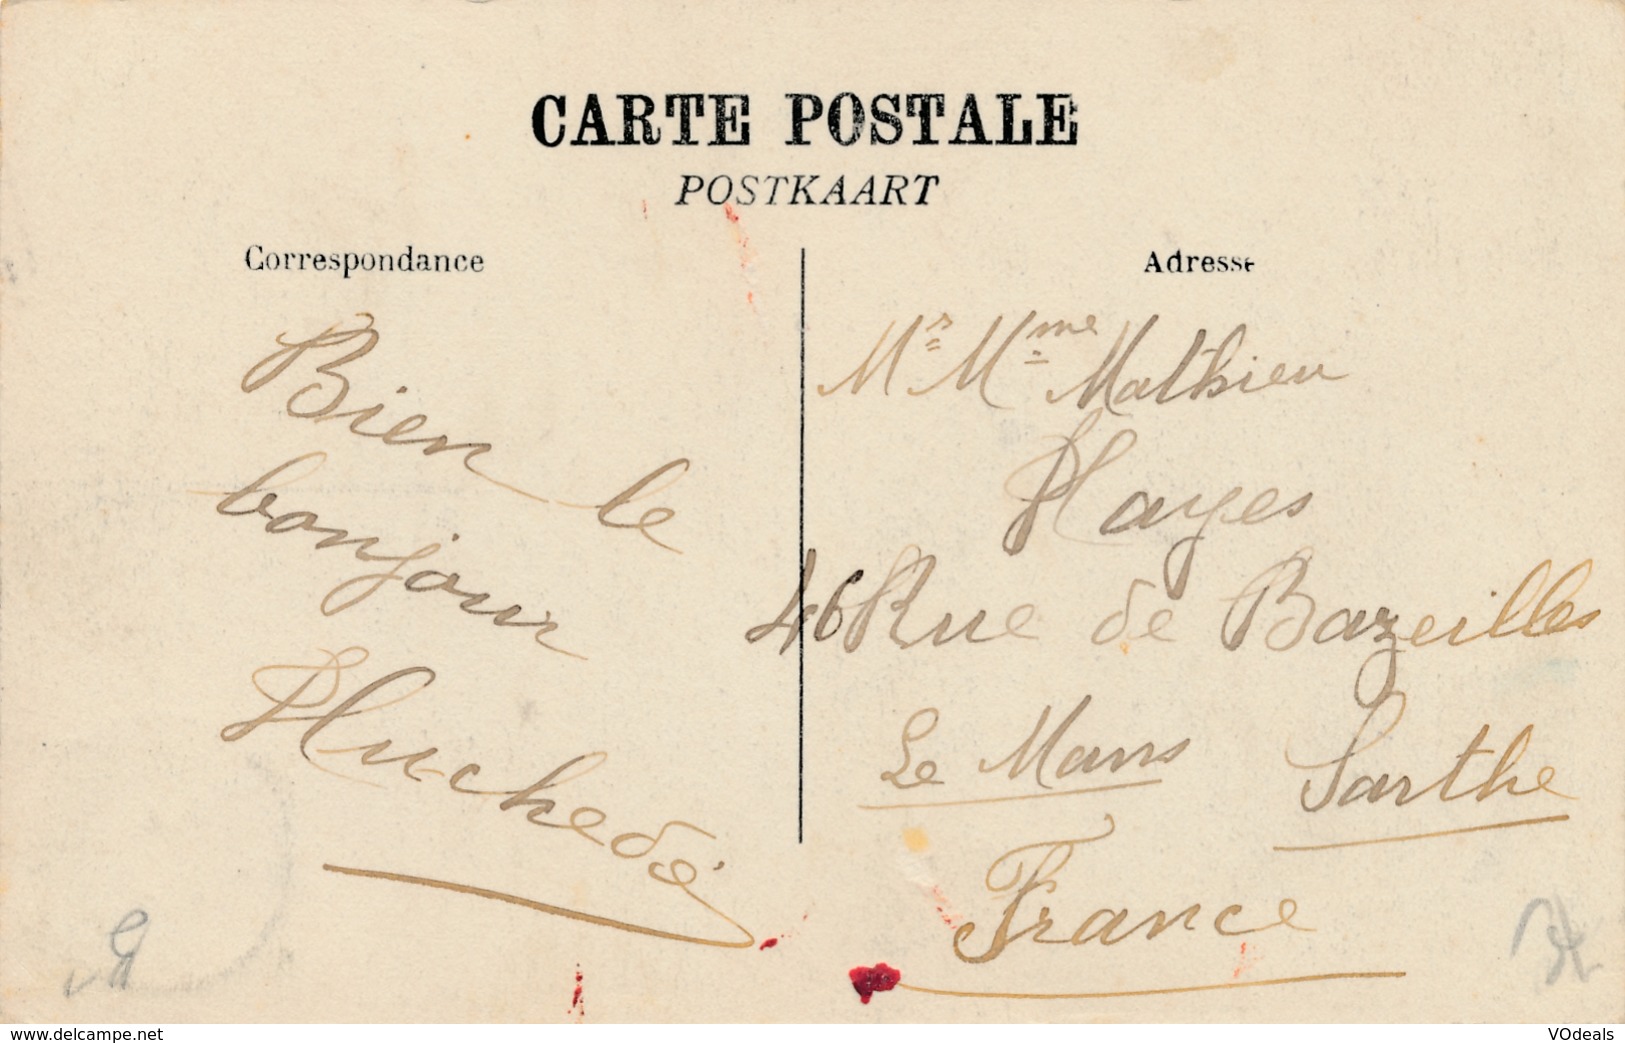 CARTE POSTALE
POSTKAART
Correspondance
Bien le
bonjour
Huchedé
Adresse
Mr Mme Mathieu
Hayes
46 Rue de Bazeilles
Le Mans Sarthe
France
www.delcampe.net
VOdeals